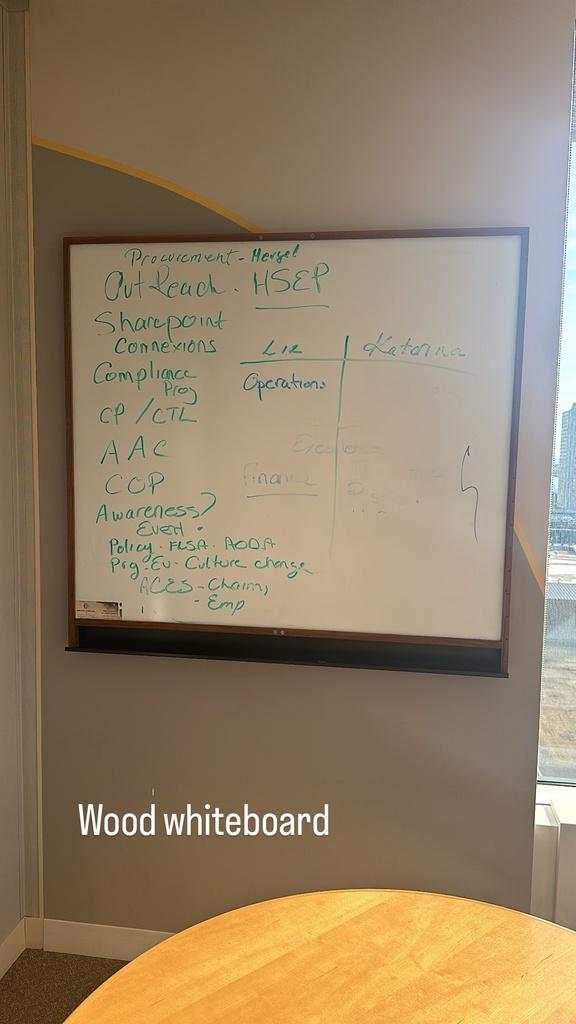 Procurement - Hersel
OutReach. HSEP
Sharepoint
Connexions
Compliance
Prog
CP / CTL
AAC
COP
Awareness?
Event.
Policy. FLSA. AODA
Prg. Ev. Culture change
ACES - Chairn,
- Emp
Liz Katerina
Operations
Excellence
Finance
Wood whiteboard